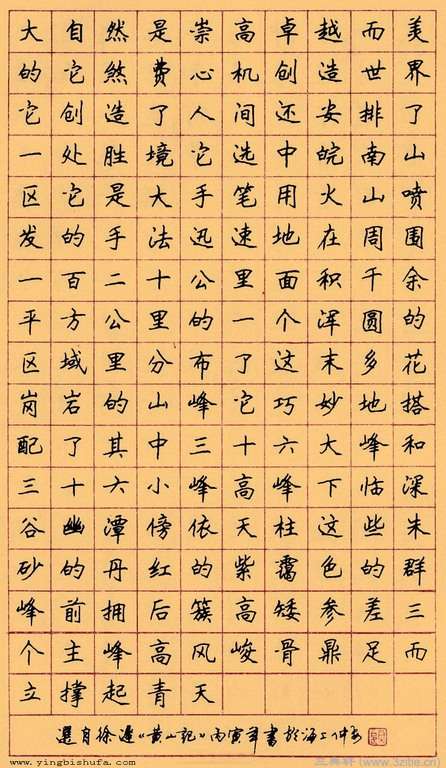 大自然是崇高卓越而美
的它煞费心机创造世界
它创造了人间还安排了
一处胜境它选中皖南山
区它是大手笔用火山喷
发的手法迅速地在周围
一百二十公里面积千余
平方公里的一个浑圆的
区域里分布了这末多花
岗岩的山峰它巧妙地搭
配了其中三十六大峰和
三十六小峰高峰下临深
谷幽潭傍依天柱这些朱
砂的丹红的紫霭色的群
峰前拥后簇高矮参差三
个主峰高风峻骨鼎足而
立撑起青天
選自徐遲《黄山記》丙寅年書於海上
www.yingbishufa.com
(www.3zitie.cn)